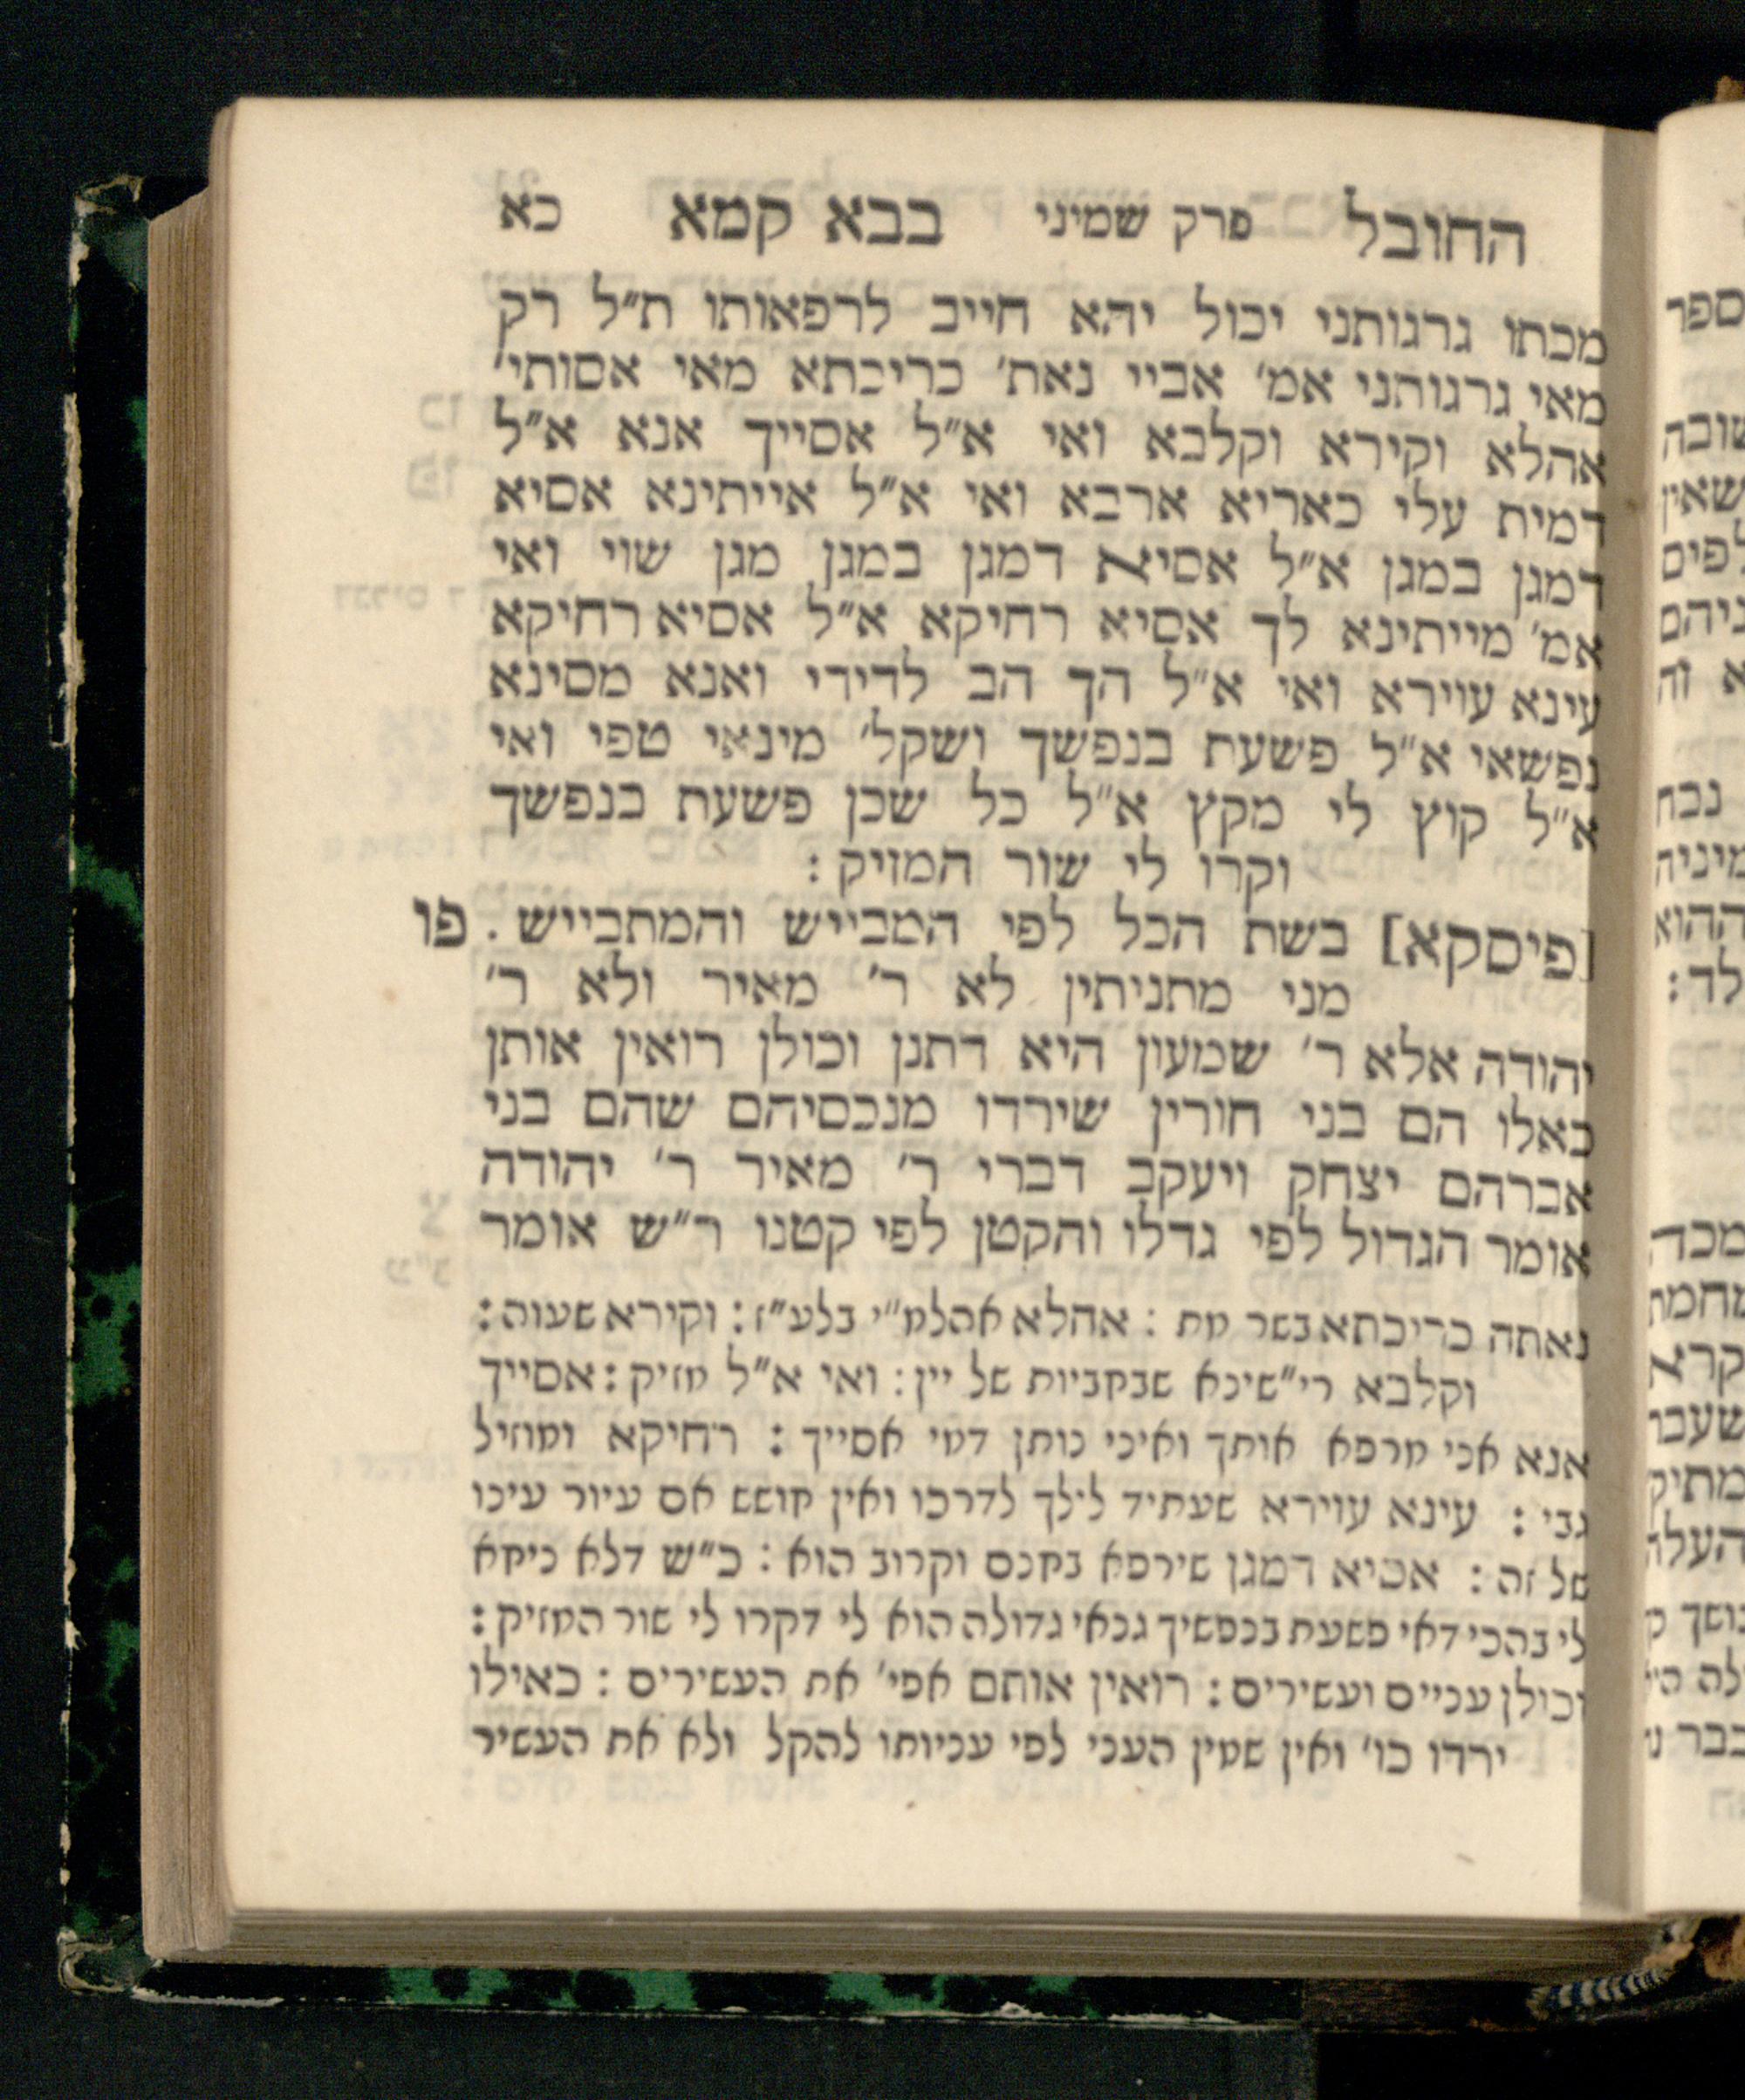 החובל פרק שמיני בבא קמא כא
מכתו גרגותני יכול יהא חייב לרפאותו ת״ל רק
מאי גרגותני אמ׳ אביי נאת׳ כריכתא מאי אסותי׳
אהלא וקירא וקלבא ואי א״ל אסייך אנא א״ל
דמית עלי כאריא ארבא ואי א״ל אייתינא אסיא
דמגן במגן א״ל אסיא דמגן במגן מגן שוי ואי
אמ׳ מייתינא לך אסיא רחיקא א״ל אסיא רחיקא
עינא עוירא ואי א״ל הך הב לדידי ואנא מסינא
נפשאי א״ל פשעת בנפשך ושקל׳ מינאי טפי ואי
א״ל קוץ לי מקץ א״ל כל שכן פשעת בנפשך
וקרו לי שור המזיק :
[פיסקא] בשת הכל לפי המבייש והמתבייש . פו
מני מתניתין לא ר׳ מאיר ולא ר׳
יהודה אלא ר׳ שמעון היא דתנן וכולן רואין אותן
כאלו הם בני חורין שירדו מנכסיהם שהם בני
אברהם יצחק ויעקב דברי ר׳ מאיר ר׳ יהודה
אומר הגדול לפי גדלו והקטן לפי קטנו ר״ש אומר
נאתה כריכתא בשר מת : אהלא אהלמ״י בלע״ז : וקירא שעוה :
וקלבא רי״שינא שבחביות של יין : ואי א״ל מזיק : אסייך
אנא אני מרפא אותך ואיני נותן דמי אסייך : רחיקא ומוזיל
גבי : עינא עוירא שעתיד לילך לדרכו ואין חושש אם עיור עינו
של זה : אסיא דמגן שירפא בחנם וקרוב הוא : כ״ש דלא ניחא
לי בהכי דאי פשעת בנפשיך גנאי גדולה הוא לי דקרו לי שור המזיק :
וכולן עניים ועשירים : רואין אותם אפי׳ את העשירים : כאילו
ירדו כו׳ ואין שמין העני לפי עניותו להקל ולא את העשיר